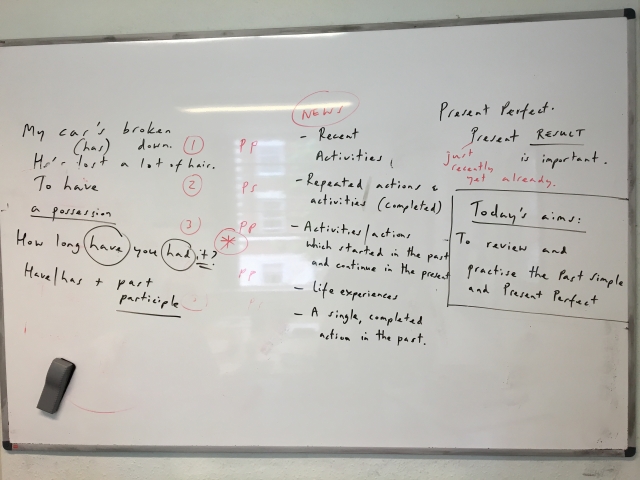 My car's broken
(has) down.
He's lost a lot of hair.
To have
a possession
How long have you had it?
Have/has + past
participle
1
PP
2
PS
3
PP
*
PP
NEWS
- Recent
Activities
- Repeated actions &
activities (completed)
- Activities/actions
which started in the past
and continue in the present
- Life experiences
- A single, completed
action in the past.
Present Perfect.
Present RESULT
is important.
just
recently
yet already.
Today's aims:
To review and
practise the Past Simple
and Present Perfect